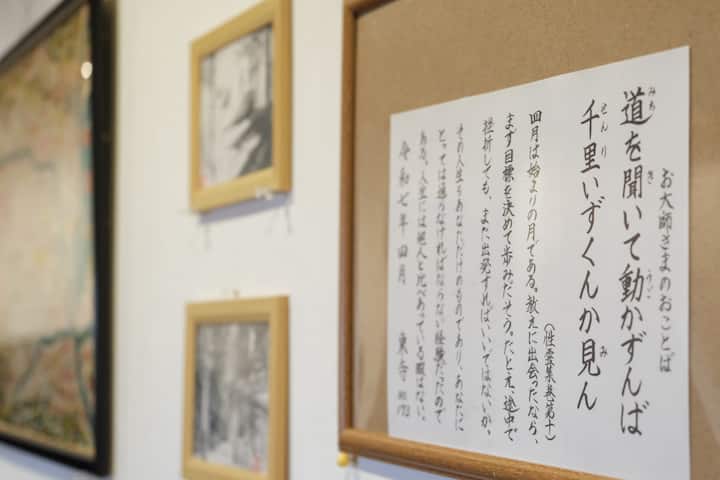 お大師さまのおことば
道を聞いて動かずんば
千里いずくんか見ん
(性霊集巻第十)
四月は始まりの月である。教えに出会ったなら、
まず目標を決めて歩みだそう。たとえ途中で
挫折しても、また出発すればいいではないか。
その人生もあなただけのものであり、あなたに
とっては通らなければならない経験だったので
ある。人生には他人と比べあっている暇はない。
令和七年四月 東寺
みち
き
うご
せんり
み